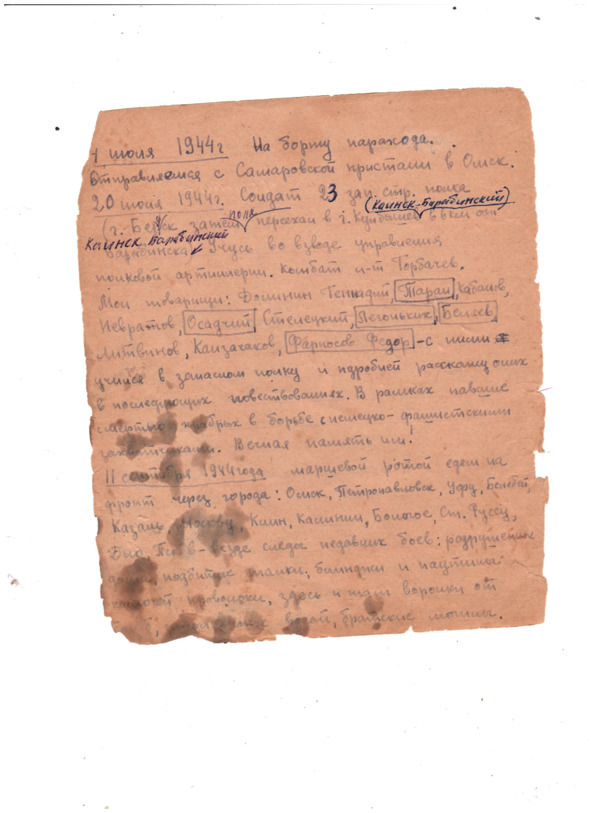 1 июня 1944г На борту парахода.
Отправляемся с Самаровской пристани в Омск.
20 июня 1944г. Солдат 23 зап. стр. полка
(Каинск-Барабинский)
(г. Бердск затем полк переехал в г. Куйбышев 6 вкм от
Каинск Барабинский
Барабинска. Учусь во взводе управления
полковой артиллерии. Комбат л-т Горбачев.
Мои товарищи: Фомкин Геннадий, Таран, Кабаяв,
Невратов, Осадчий Стелецкий, Легоньких, Беляев,
Литвинов, Канзачаков, Фарносов Федор - с ними
учился в запасном полку и подробней расскажу о них
в последующих повествованиях. В рамках павшие
смертью храбрых в борьбе с немецко-фашистскими
захватчиками. Вечная память им.
11 сентября 1944 года маршевой ротой едем на
фронт через города: Омск, Петропавловск, Уфу, Белебей,
Казань, Москву, Клин, Калинин, Бологое, Ст. Руссу,
Псков - везде следы недавних боев: разрушенные
дома, подбитые танки, блиндажи и паутина
колючей проволоки, здесь и там воронки от
водой, братские могилы.